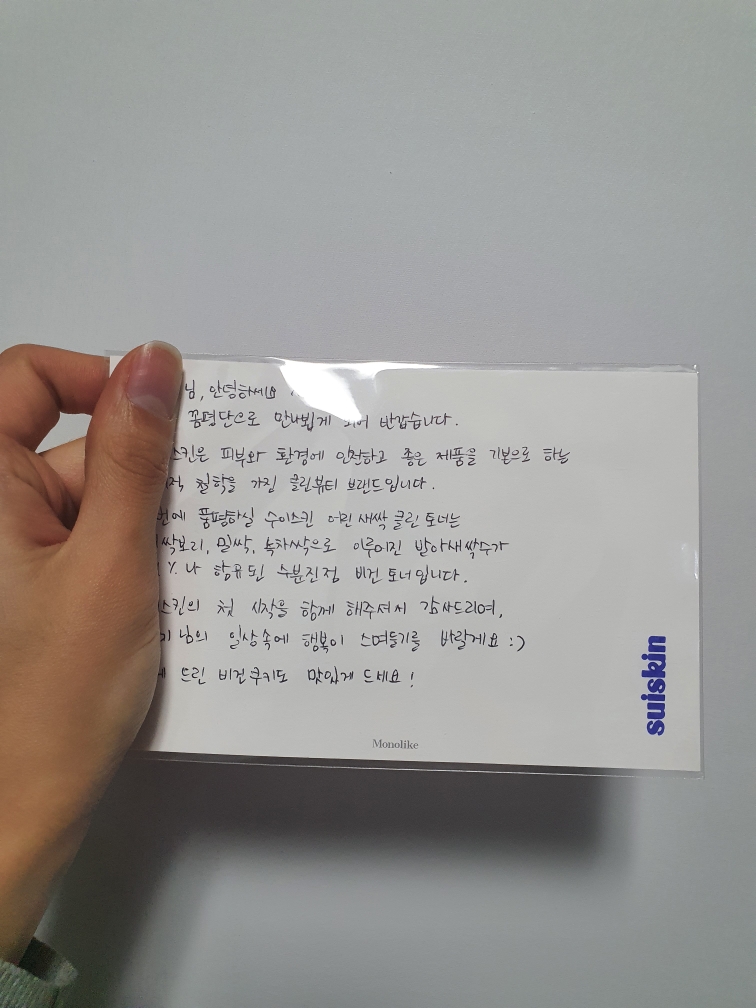 님, 안녕하세요
품평단으로 만나뵙게 되어 반갑습니다.
스킨은 피부와 환경에 안전하고 좋은 제품을 기본으로 하는
철학을 가진 클린뷰티 브랜드입니다.
번에 품평하실 수이스킨 어린새싹 클린토너는
싹보리, 밀싹, 녹차싹으로 이루어진 발아새싹수가
%나 함유된 수분진정 비건토너입니다.
스킨의 첫 시작을 함께 해주셔서 감사드리며,
님의 일상속에 행복이 스며들기를 바랄게요 :)
드린 비건쿠키도 맛있게 드세요!
suiskin
Monolike